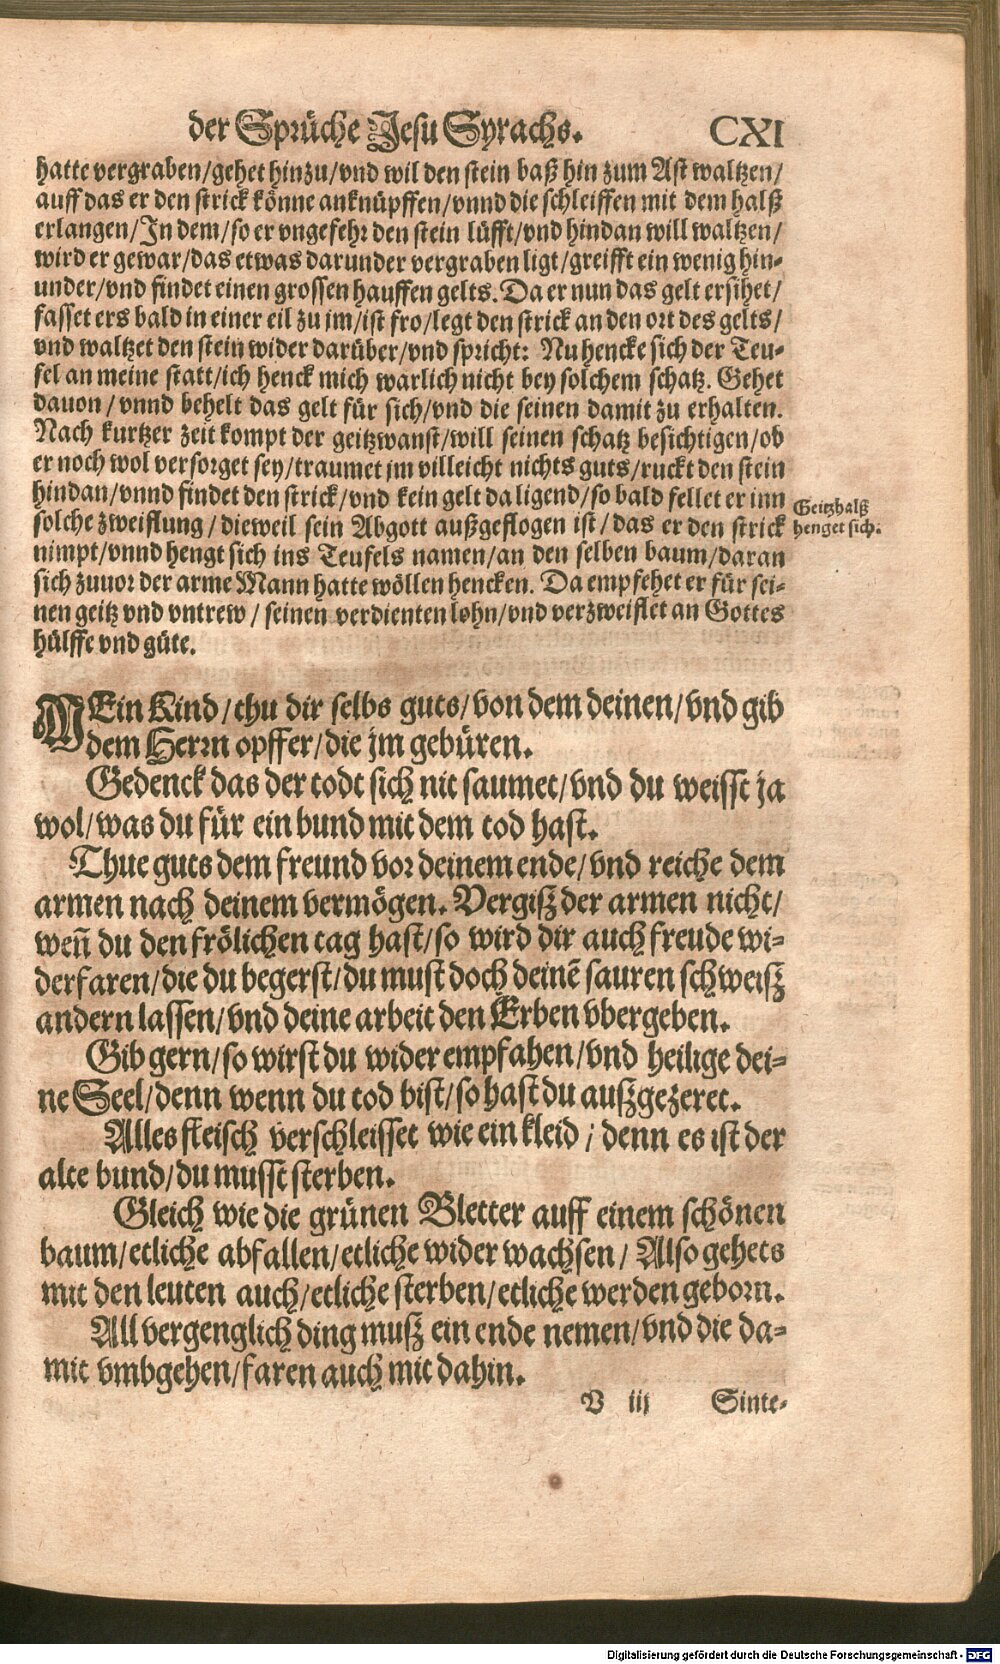 der Sprüche Jesu Syrachs. CXI
hatte vergraben/gehet hinzu/vnd wil den stein baß hin zum Ast waltzen/
auff das er den strick könne anknüpffen/vnnd die schleiffen mit dem halß
erlangen/In dem/so er vngefehr den stein lüfft/vnd hindan will waltzen/
wird er gewar/das etwas darunder vergraben ligt/greifft ein wenig hin-
under/vnd findet einen grossen hauffen gelts. Da er nun das gelt ersihet/
fasset ers bald in einer eil zu im/ist fro/legt den strick an den ort des gelts/
vnd waltzet den stein wider darüber/vnd spricht: Nu hencke sich der Teu-
fel an meine statt/ich henck mich warlich nicht bey solchem schatz. Gehet
dauon/vnnd behelt das gelt für sich/vnd die seinen damit zu erhalten.
Nach kurtzer zeit kompt der geitzwanst/will seinen schatz besichtigen/ob
er noch wol versorget sey/traumet jm villeicht nichts guts/ruckt den stein
hindan/vnnd findet den strick/vnd kein gelt da ligend/so bald fellet er inn
solche zweiflung/dieweil sein Abgott außgeflogen ist/das er den strick
nimpt/vnnd hengt sich ins Teufels namen/an den selben baum/daran
sich zuuor der arme Mann hatte wöllen hencken. Da empfehet er für sei-
nen geitz vnd vntrew/seinen verdienten lohn/vnd verzweiflet an Gottes
hülffe vnd güte.
Geitzhalß
henget sich.
MEin Kind/thu dir selbs guts/von dem deinen/vnd gib
dem Herrn opffer/die jm gebüren.
Gedenck das der todt sich nit saumet/vnd du weisst ja
wol/was du für ein bund mit dem tod hast.
Thue guts dem freund vor deinem ende/vnd reiche dem
armen nach deinem vermögen. Vergiß der armen nicht/
weñ du den frölichen tag hast/so wird dir auch freude wi-
derfaren/die du begerst/du must doch deinẽ sauren schweiß
andern lassen/vnd deine arbeit den Erben vbergeben.
Gib gern/so wirst du wider empfahen/vnd heilige dei-
ne Seel/denn wenn du tod bist/so hast du außgezeret.
Alles fleisch verschleisset wie ein kleid; denn es ist der
alte bund/du musst sterben.
Gleich wie die grünen Bletter auff einem schönen
baum/etliche abfallen/etliche wider wachsen/Also gehets
mit den leuten auch/etliche sterben/etliche werden geborn.
All vergenglich ding muß ein ende nemen/vnd die da-
mit vmbgehen/faren auch mit dahin.
V iij Sinte-
Digitalisierung gefördert durch die Deutsche Forschungsgemeinschaft - DFG